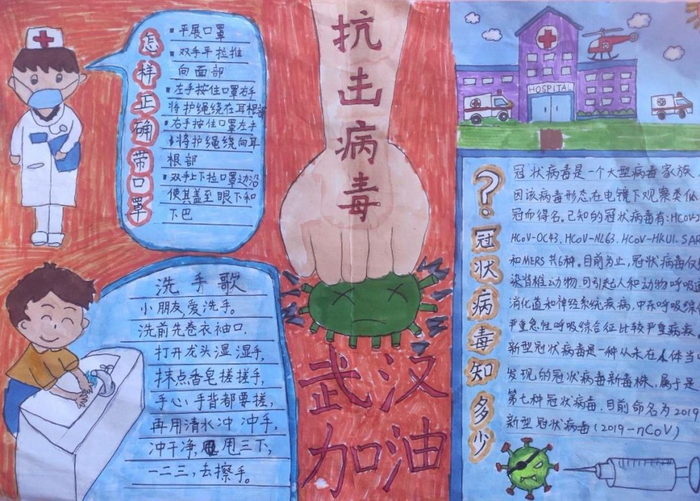 怎样正确带口罩
▪平展口罩
▪双手平拉推
向面部
▪左手按住口罩右手
将护绳绕在耳根部
▪右手按住口罩左手
将护绳绕向耳
根部
▪双手上下拉口罩边沿
使其盖至眼下和
下巴
洗手歌
小朋友爱洗手。
洗前先卷衣袖口,
打开龙头湿湿手,
抹点香皂搓搓手,
手心手背都要搓,
再用清水冲冲手,
冲干净,甩三下,
一二三,去擦手。
抗击病毒
武汉
加油
HOSPITAL
?冠状病毒知多少
冠状病毒是一个大型病毒家族,
因该病毒形态在电镜下观察类似
冠而得名。已知的冠状病毒有:HCoV-
HCoV-OC43.HCoV-NL63.HCoV-HKU1.SAR
和MERS共6种。目前为止,冠状病毒仅
染脊椎动物,可引起人和动物呼吸道
消化道和神经系统疾病,中东呼吸综
严重急性呼吸综合征比较严重疾病。
新型冠状病毒是一种从未在人体当
发现的冠状病毒新毒株,属于是
第七种冠状病毒,目前命名为2019
新型冠状病毒(2019-nCoV)